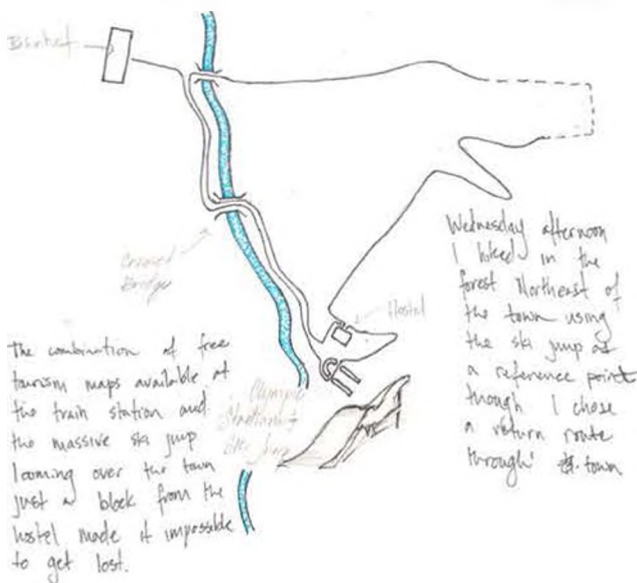 Covered
Bridge
Hostel
Olympic
Stadium &
Ski Jump
Wednesday afternoon
I hiked in the
forest Northeast of
the town using
the ski jump as
a reference point
though I chose
a return route
through town
The combination of free
tourism maps available at
the train station and
the massive ski jump
looming over the town
just a block from the
hostel made it impossible
to get lost.